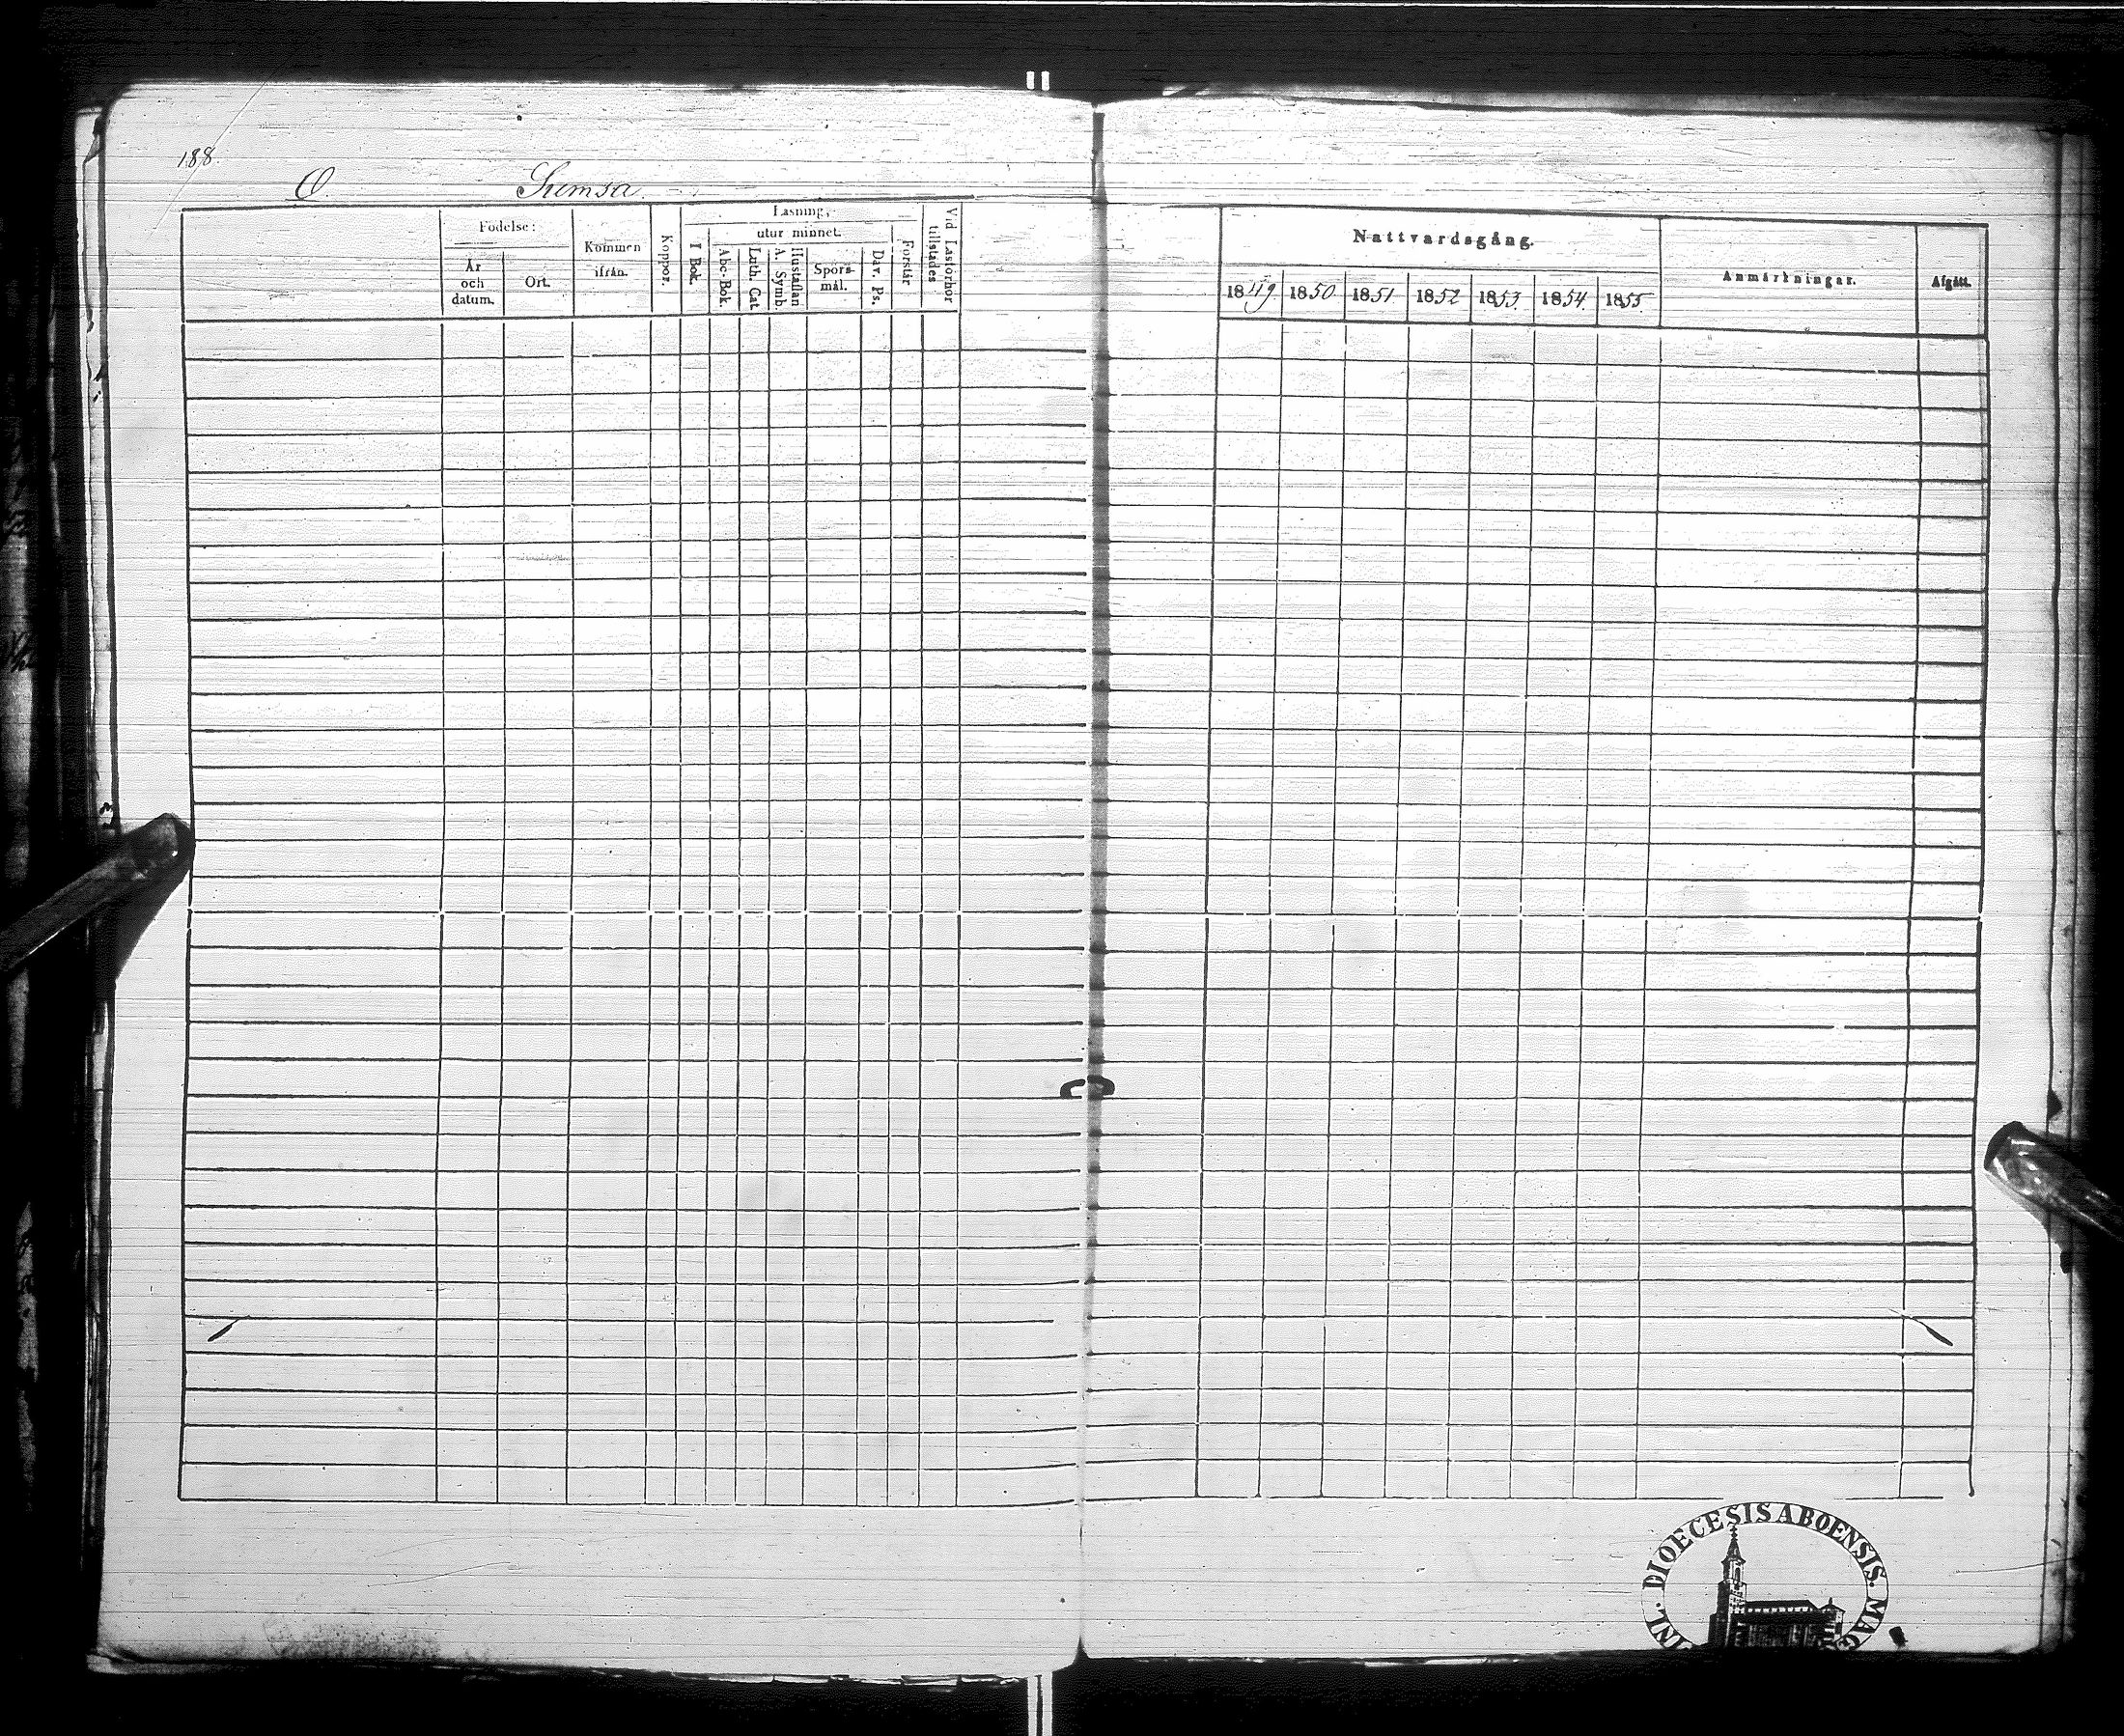 188.
O. Sumsa.
Födelse:
År och datum.
Ort.
Kommen ifrån.
Koppor.
Läsning,
utur minnet.
I Bok.
Abc-Bok.
Luth. Cat.
Hustaflan A. Symb.
Spörsmål.
Dav. Ps.
Förstår
Vid Läsförhör tillstädes
Nattvardsgång.
1849. 1850 1851 1852 1853. 1854. 1855.
Anmärkningar.
Afgått.
FINL. DIOECESIS ABOENSIS. MAG